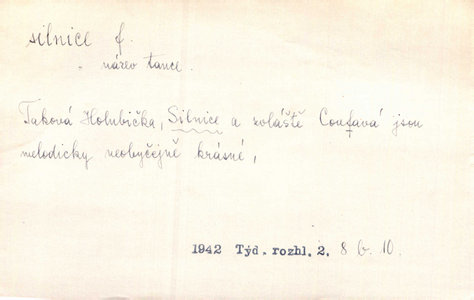 silnice f.
název tance.
Taková Holubička, Silnice a zvláště Coufavá jsou
melodicky neobyčejně krásné,
1942 Týd. rozhl. 2. 8 6. 10.